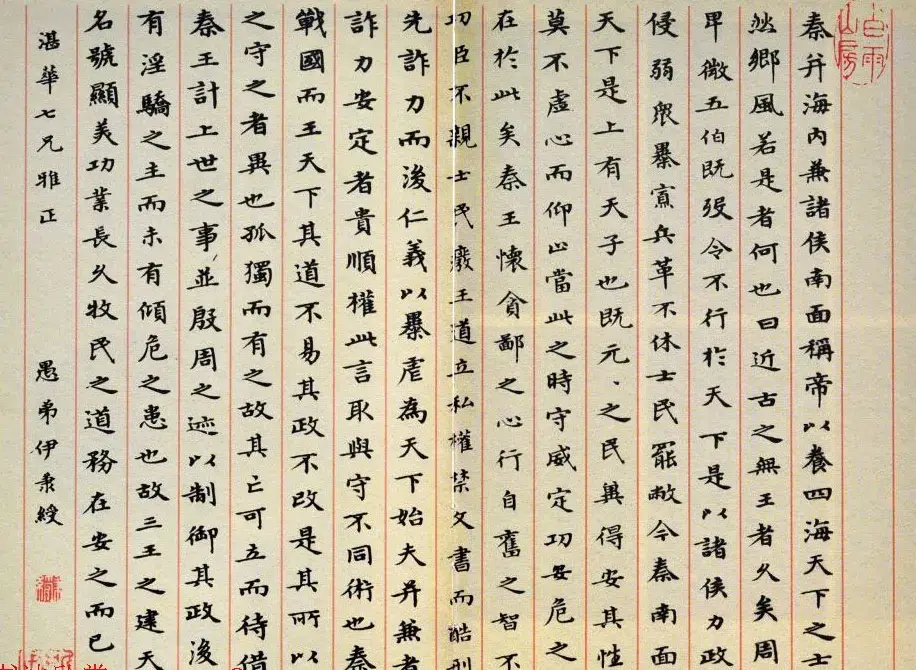 白雨山房
秦并海內兼諸侯南面稱帝以養四海天下之士
然鄉風若是者何也曰近古之無王者久矣周
卑微五伯既歿令不行於天下是以諸侯力政
侵弱眾暴寡兵革不休士民罷敝今秦南面
天下是上有天子也既元、之民冀得安其性
莫不虛心而仰上當此之時守威定功安危之
在於此矣秦王懷貪鄙之心行自奮之智不
功臣不親士民廢王道立私權禁文書而酷刑
先詐力而後仁義以暴虐為天下始夫并兼者
詐力安定者貴順權此言取與守不同術也秦
戰國而王天下其道不易其政不改是其所以
之守之者異也孤獨而有之故其亡可立而待借
秦王計上世之事並殷周之迹以制御其政後
有淫驕之主而未有傾危之患也故三王之建天
名號顯美功業長久牧民之道務在安之而已
湛華七兄雅正
愚弟伊秉綬